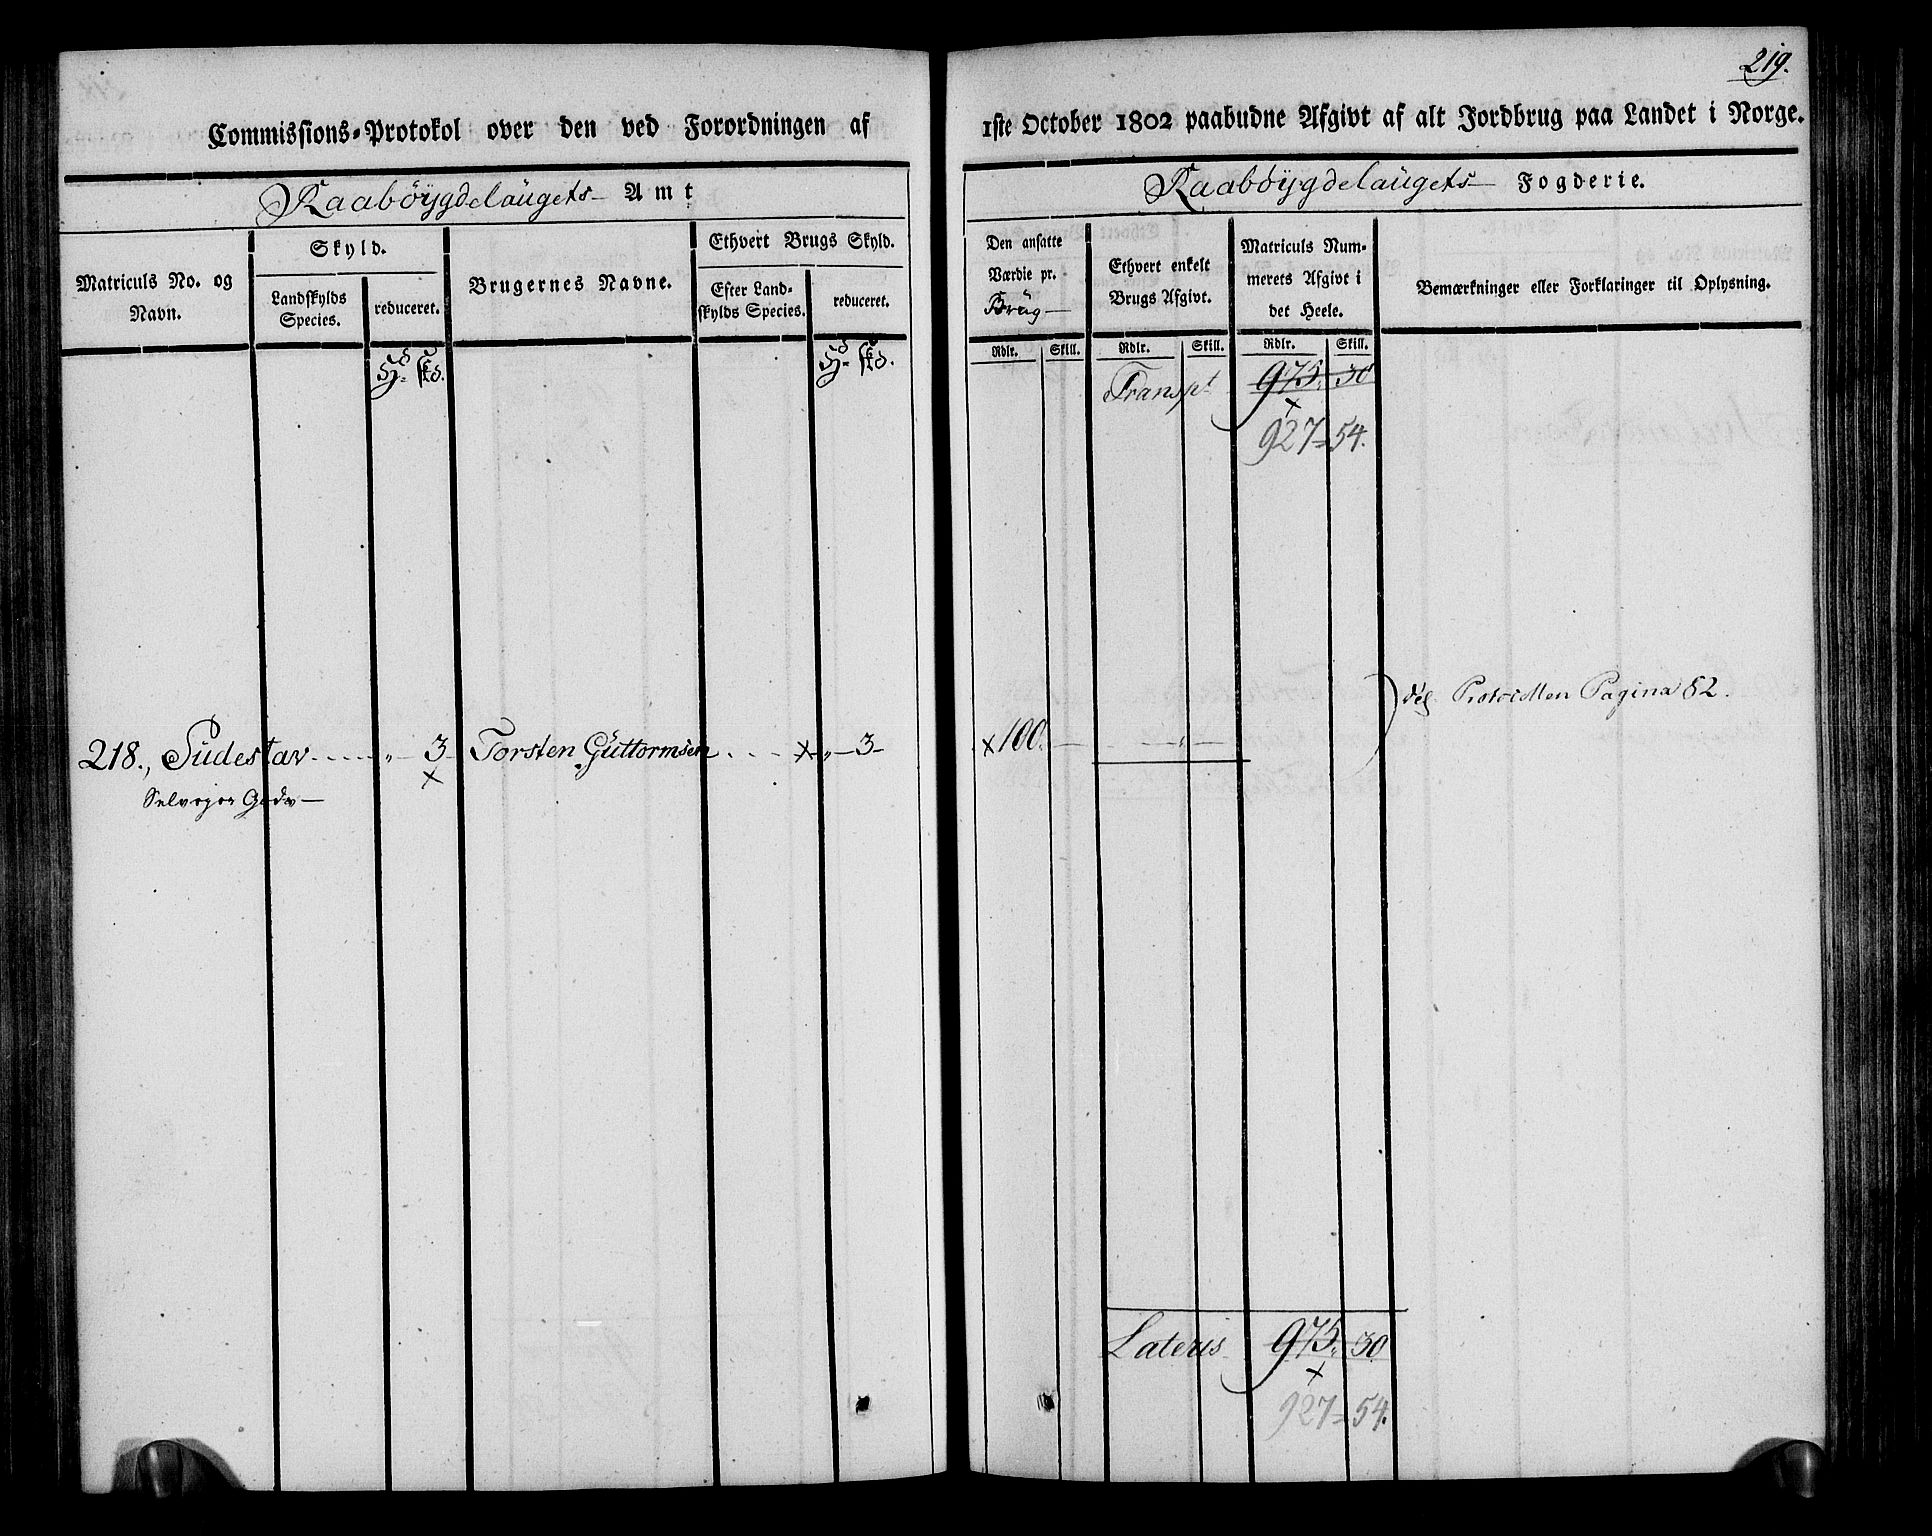 219.
Commissions-Protokol over den ved Forordningen af 1ste October 1802 paabudne Afgivt af alt Jordbrug paa Landet i Norge.
Raabøÿgdelaugets Amt
Raabøÿgdelaugets Fogderie.
Matriculs No. og Navn.
Skyld.
Landskylds Species.
reduceret.
Brugernes Navne.
Ethvert Brugs Skyld.
Efter Landskylds Species.
reduceret.
Den ansatte Værdie pr. Brüg
Ethvert enkelt Brugs Afgivt.
Matriculs Nummerets Afgivt i det Heele.
Bemærkninger eller Forklaringer til Oplysning.
Rdlr. Skill. Rdlr. Skill. Rdlr. Skill.
Transpt 975. 30
x
927 = 54.
Pagina 82.
218., Sudestav . . . . „ — 3 Torsten Guttormsen . . . x „ — 3 — x 100. — „ —
x
Selveier Gods —
Lateris 975. 30
x
927 = 54.